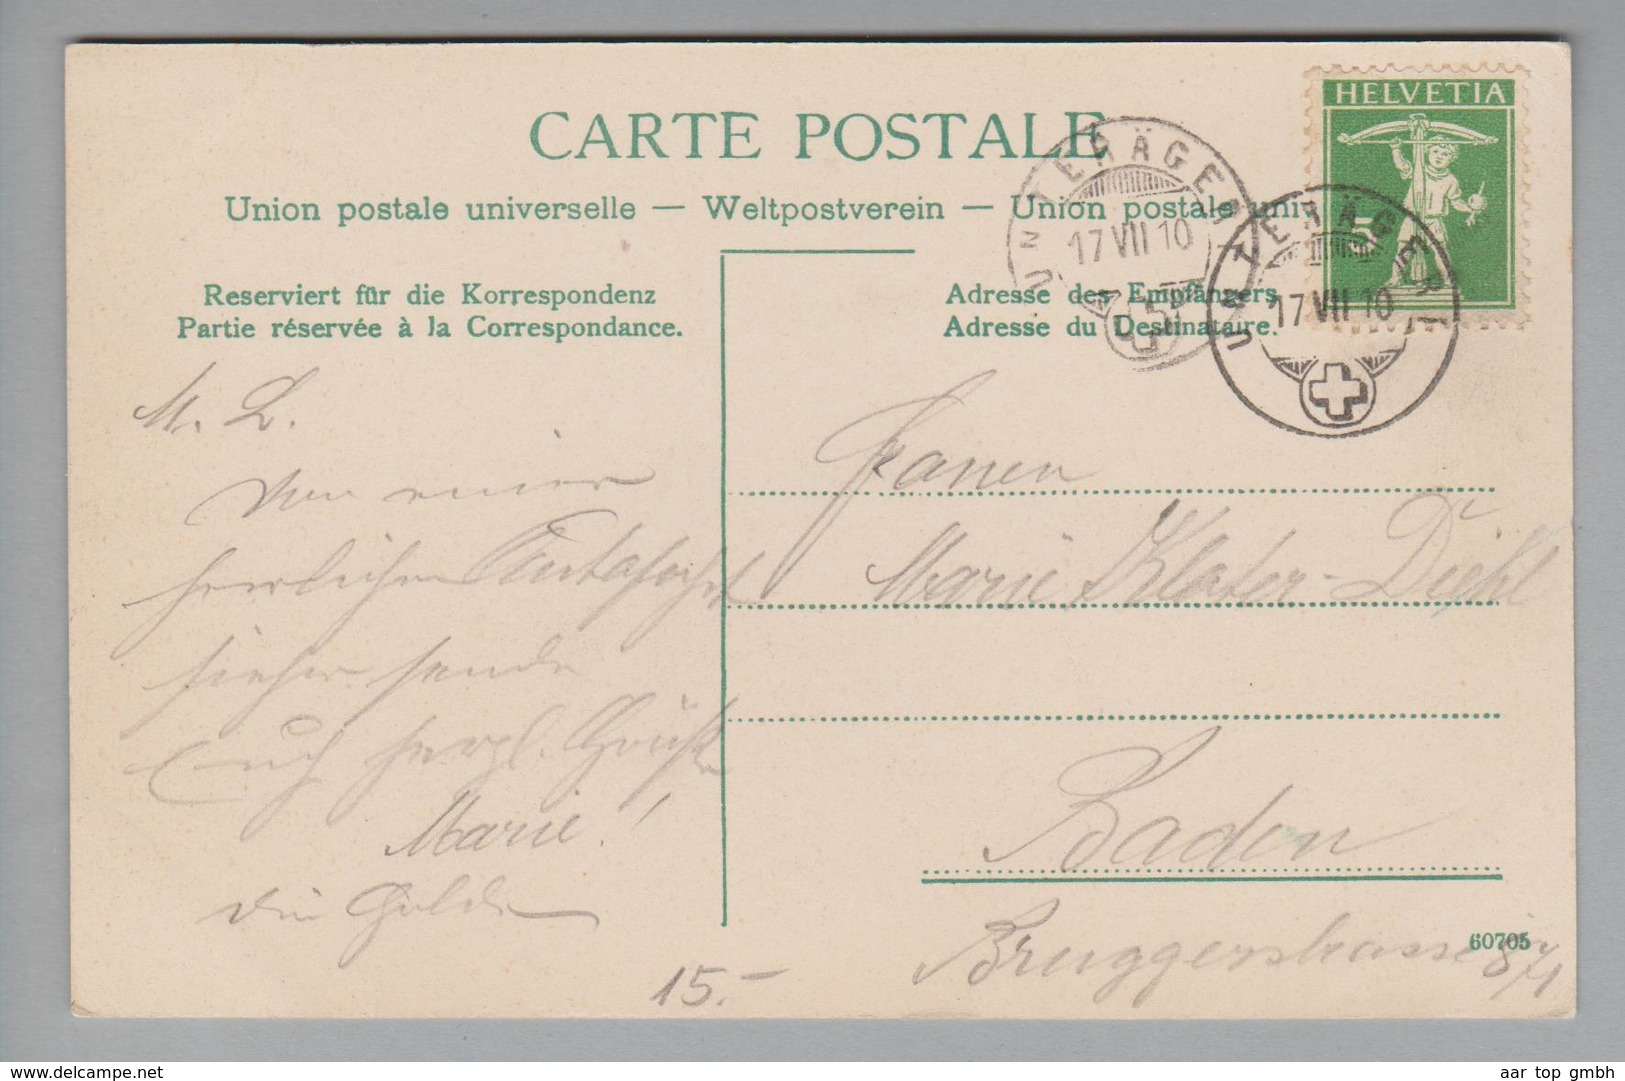 CARTE POSTALE
Union postale universelle — Weltpostverein — Union postale uni
HELVETIA
5
UNTERÄGERI
17 VII 10
UNTERÄGERI
17 VII 10
Reserviert für die Korrespondenz
Partie réservée à la Correspondance.
Adresse des Empfängers.
Adresse du Destinataire.
M. L.
Von einer
herrlichen
sende
Euch herzl. Grüße
Marie!
Marie
Diehl
Baden
Bruggerstrasse
60705
15.-
www.delcampe.net
aar top gmbh